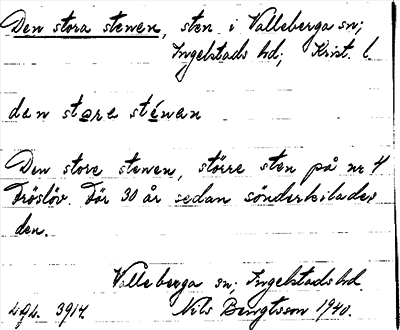 Den stora stenen, sten i Valleberga sn;
Ingelstads hd; Krist. l.
den store sténen
Den store stenen, större sten på nr 4
Fröslöv. För 30 år sedan sönderkilades
den.
Valleberga sn; Ingelstads hd.
3914. Nils Bengtsson 1940.